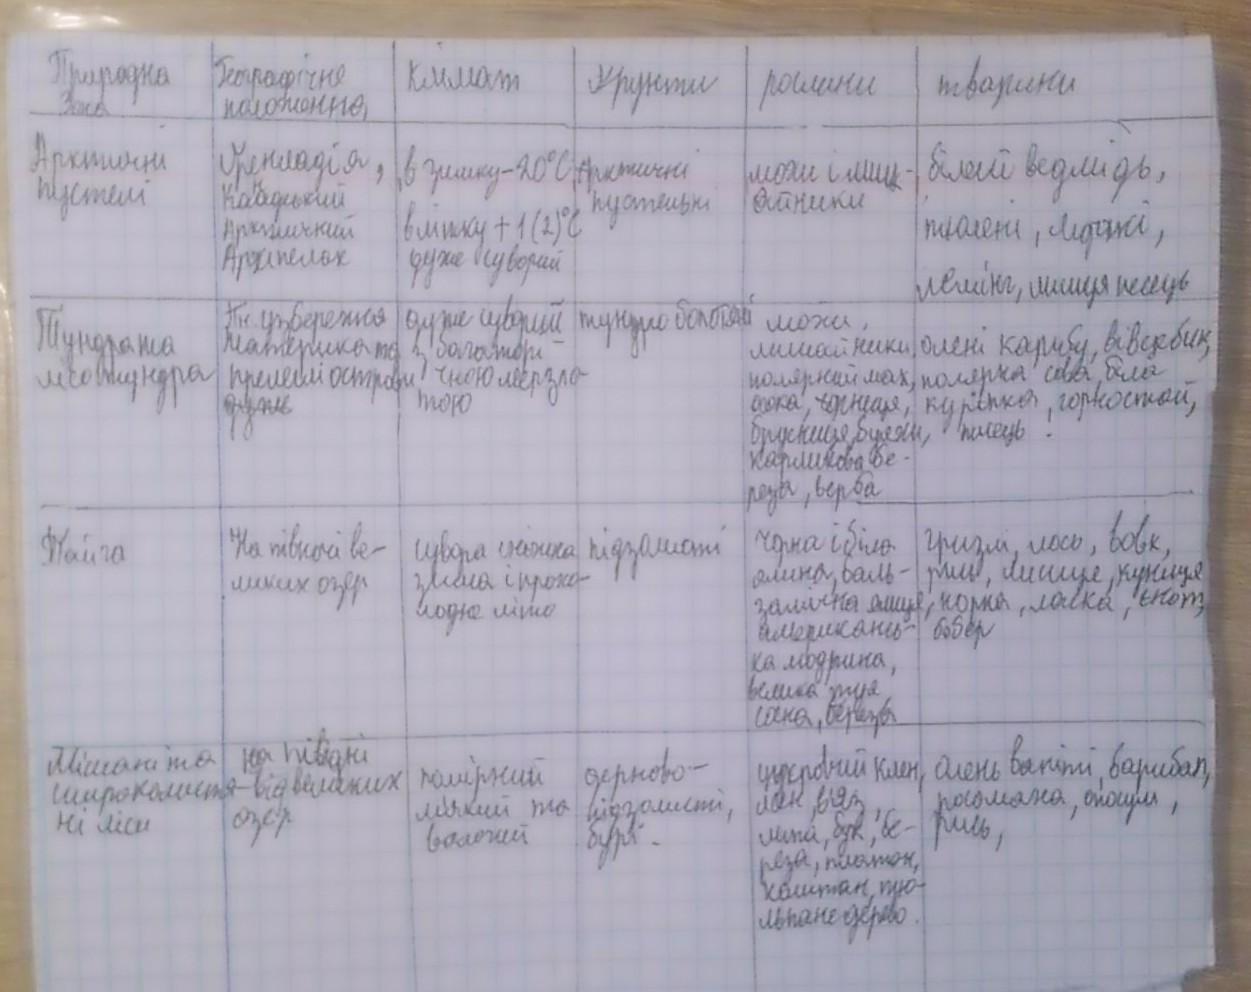 Природна
Зона
Географічне
положення
Клімат
Ґрунти
рослини
тварини
Арктичні
пустелі
Гренладія,
Канадський
Арктичний
Архіпелаг
в зимку -20°C
влітку + 1(2)°C
дуже суворий
Арктичні
пустельні
мохи і лиш-
айники
білий ведмідь,
тюлені, моржі,
лемінг, лисиця песець
Тундра та
лісотундра
Пн. узбережжя
материка та
прилеглі острови
дуже
дуже суворий
з багаторі-
чною мерзло-
тою
тундро болотяні
мохи,
лишайники,
полярний мак,
осока, чорниця,
брусниця, буяхи,
карликова бе-
реза, верба
олені карибу, вівцебик,
полярна сова, біла
куріпка, горностай,
песець.
Тайга
На півночі ве-
ликих озер
сувора сніжна
зима і прохо-
лодне літо
підзолисті
Чорна і біла
ялина, баль-
замічна ялиця,
американсь-
ка модрина,
велика туя,
сосна, береза
грізлі, лось, вовк,
рись, лисиця, куниця
норка, ласка, єнот,
бобер
Мішані та
широколистя-
ні ліси
на півдні
від великих
озер
помірний
м'який та
вологий
дерново-
підзолисті,
бурі.
цукровий клен,
в'яз,
липа, бук, бе-
реза, платан,
каштан, тю-
льпане дерево.
олень вапіті, барибал,
росомаха, опосум,
рись,